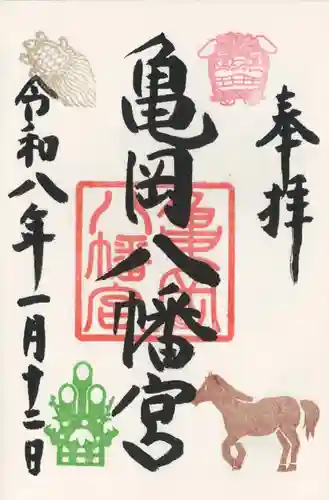 奉拝
亀岡八幡宮
亀岡八幡宮
令和八年一月十二日